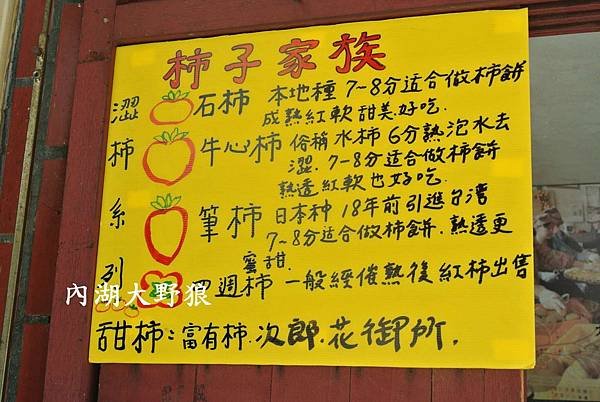 柿子家族
澀柿系列
石柿 本地種 7~8分适合做柿餅
成熟紅軟甜美.好吃.
牛心柿 俗稱水柿 6分熟泡水去
澀.7~8分适合做柿餅
熟透紅軟也好吃.
筆柿 日本种 18年前引進台湾
7~8分适合做柿餅.熟透更
蜜甜.
四週柿 一般經催熟後紅柿出售
甜柿:富有柿.次郎.花御所.
內湖大野狼